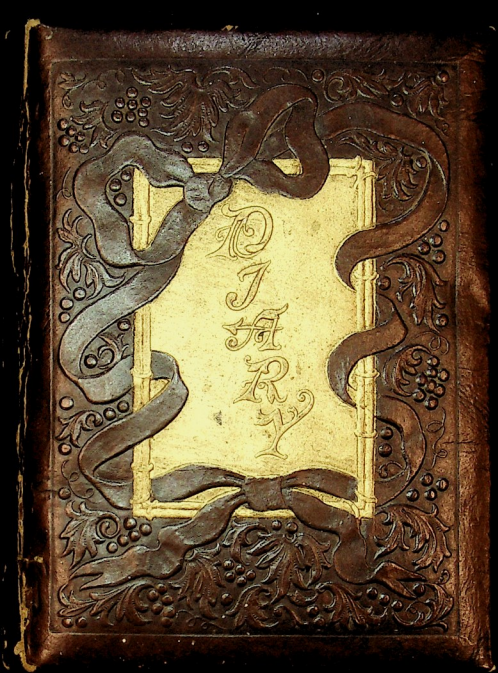 D
I
A
R
Y